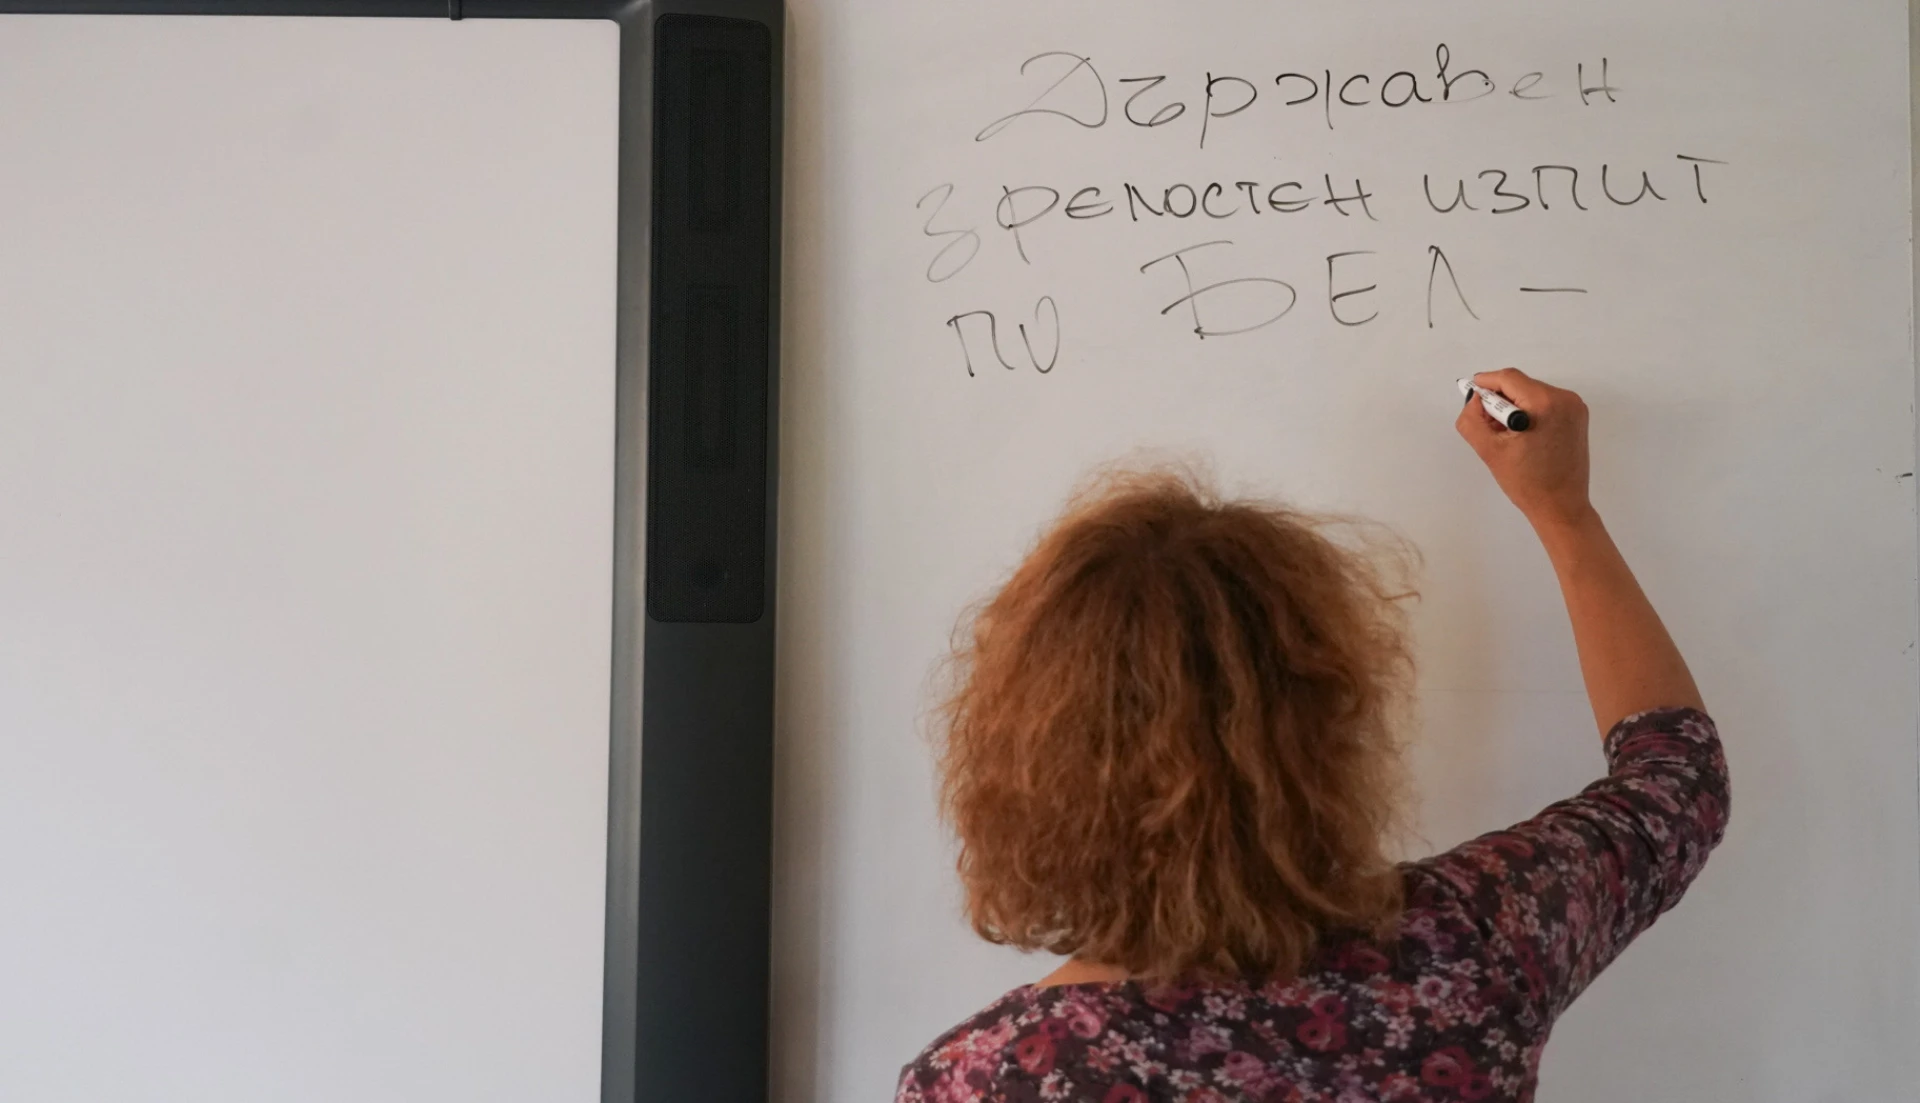 Държавен
зрелостен изпит
по БЕЛ –